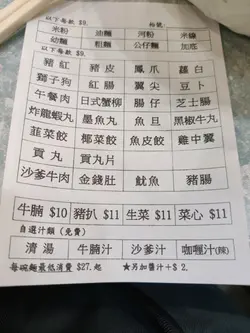 以下每款 $9. 枱號:
米粉 油面 河粉 米線
幼麵 粗麵 公仔麵 加底
以下每款 $9.
豬紅 豬皮 鳳爪 蘿白
獅子狗 紅腸 翼尖 豆卜
午餐肉 日式蟹柳 腸仔 芝士腸
炸龍蝦丸 墨魚丸 魚旦 黑椒牛丸
韮菜餃 椰菜餃 魚皮餃 雞中翼
貢丸 貢丸片
沙爹牛肉 金錢肚 魷魚 豬腸
牛腩 $10 豬扒 $11 生菜 $11 菜心 $11
自選汁類 (免費)
清湯 牛腩汁 沙爹汁 咖喱汁(辣)
每碗麵最低消費 $27.起 ★另加醬汁+$2.